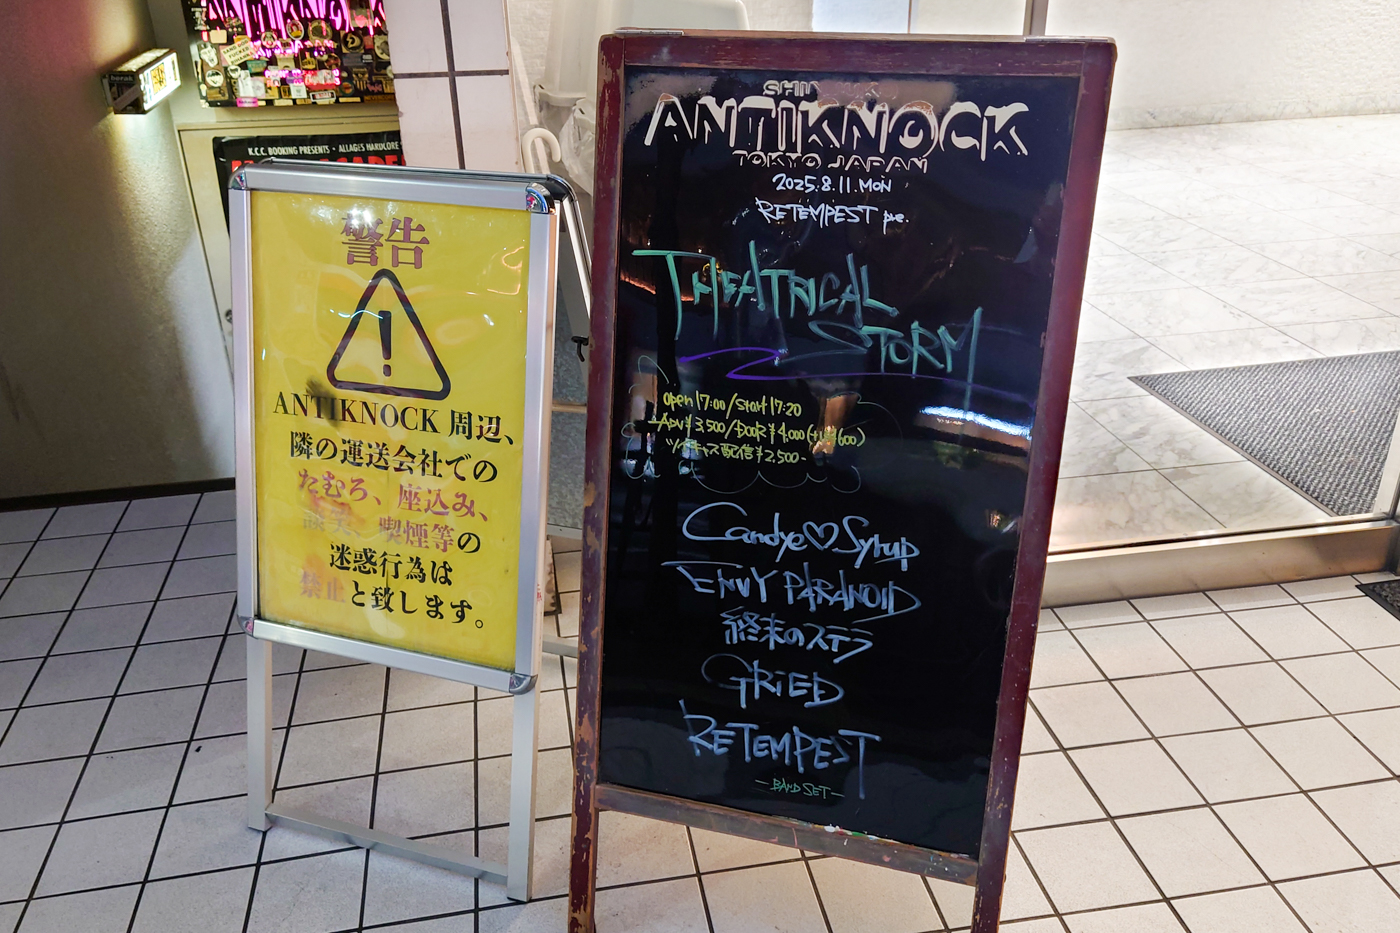 K.C.C. BOOKING PRESENTS・ALLAGES HARDCORE
警告
!
ANTIKNOCK 周辺、
隣の運送会社での
たむろ、座込み、
談笑、喫煙等の
迷惑行為は
禁止と致します。
ANTIKNOCK
TOKYO JAPAN
2025.8.11.MON
RETEMPEST pre.
THEATRICAL
STORM
open 17:00/Start 17:20
ADV ¥3,500/DOOR ¥4,000(+1D ¥600)
ツイキャス配信¥2,500-
Candye♡Syrup
ENVY PARANOID
終末のステラ
GRiED
RETEMPEST
-BAND SET-